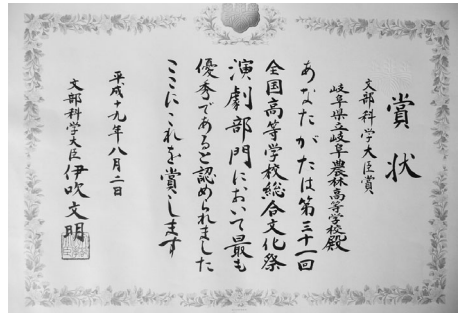 賞状
文部科学大臣賞
岐阜県立岐阜農林高等学校殿
あなたがたは第三十一回
全国高等学校総合文化祭
演劇部門において最も
優秀であると認められました
ここにこれを賞します
平成十九年八月二日
文部科学大臣 伊吹文明